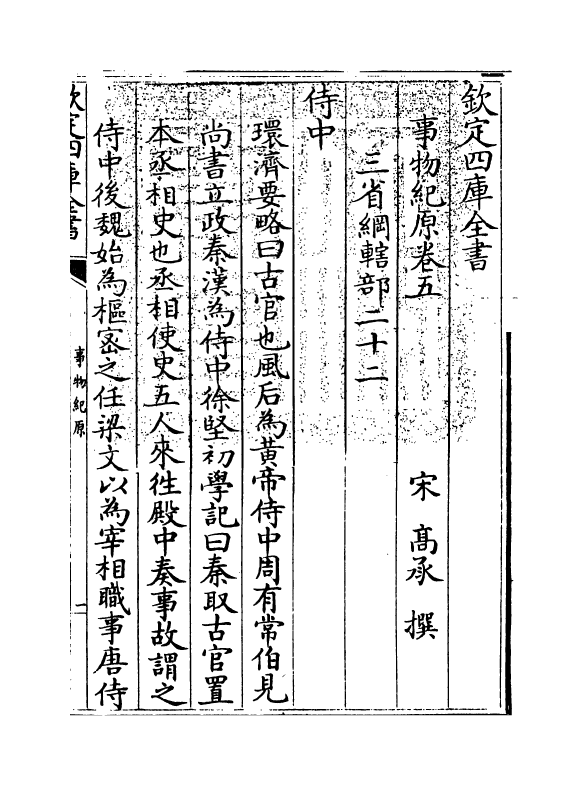 欽定四庫全書
事物紀原卷五
宋 高承 撰
三省綱轄部二十二
侍中
環濟要略曰古官也風后為黃帝侍中周有常伯見
尚書立政秦漢為侍中徐堅初學記曰秦取古官置
本丞相史也丞相使史五人來徃殿中奏事故謂之
侍中後魏始為樞密之任梁文以為宰相職事唐侍
欽定四庫全書
事物紀原
一